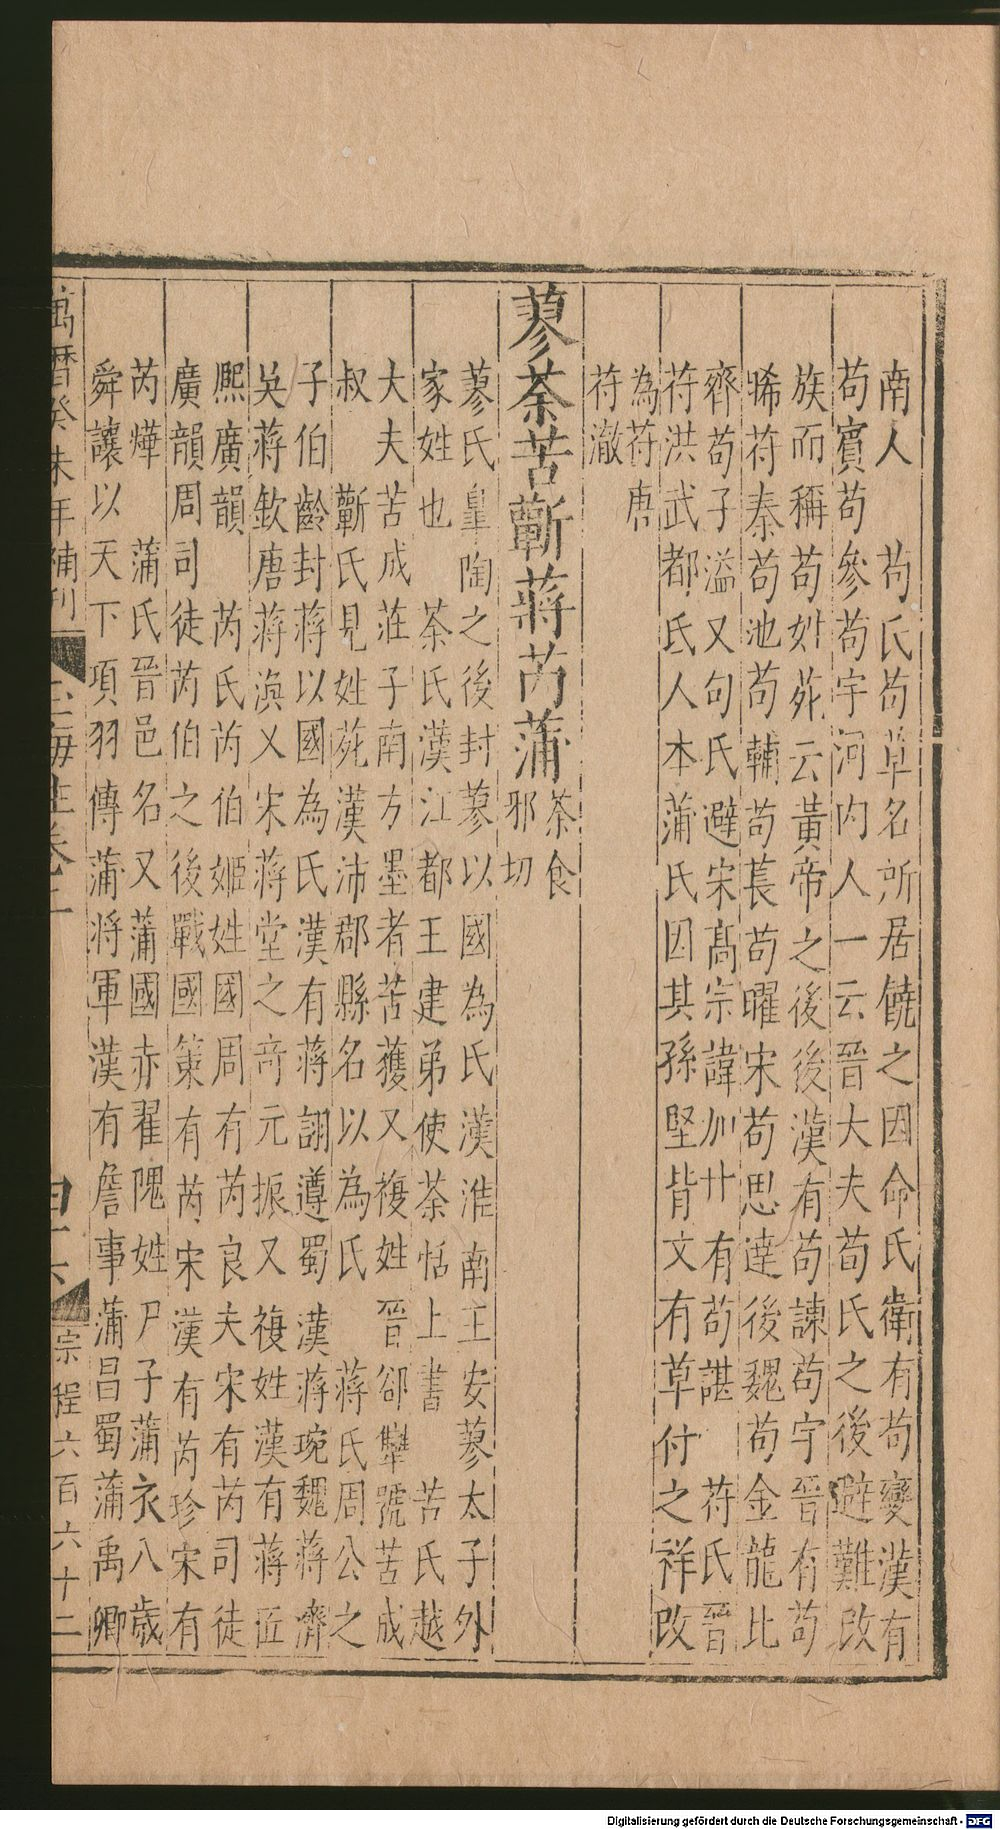 南人　苟氏苟草名所居饒之因命氏衛有苟變漢有
苟賓苟參苟宇河內人一云晉大夫荀氏之後避難改
族而稱苟姓苑云黃帝之後後漢有苟諫苟宇晉有苟
晞苻秦苟池苟輔苟萇苟曜宋苟思達後魏苟金龍比
齊苟子溢又句氏避宋高宗諱加艹有苟諶　苻氏晉
苻洪武都氐人本蒲氏因其孫堅背文有草付之祥改
為苻　唐
苻澈
蓼荼苦蘄蔣芮蒲
荼食
邪切
蓼氏皋陶之後封蓼以國為氏漢淮南王安蓼太子外
家姓也　荼氏漢江都王建弟使荼恬上書　苦氏越
大夫苦成莊子南方墨者苦獲又複姓晉郤犨號苦成
叔　蘄氏見姓苑漢沛郡縣名以為氏　蔣氏周公之
子伯齡封蔣以國為氏漢有蔣詡遵蜀漢蔣琬魏蔣濟
吳蔣欽唐蔣渙乂宋蔣堂之奇元振又複姓漢有蔣匠
熙廣韻　芮氏芮伯姬姓國周有芮良夫宋有芮司徒
廣韻周司徒芮伯之後戰國策有芮宋漢有芮珍宋有
芮燁　蒲氏晉邑名又蒲國赤翟隗姓尸子蒲衣八歲
舜讓以天下項羽傳蒲將軍漢有詹事蒲昌蜀蒲禹卿
萬曆癸未年補刊
玉海姓卷二
四十六
宗程六百六十二
Digitalisierung gefördert durch die Deutsche Forschungsgemeinschaft - DFG